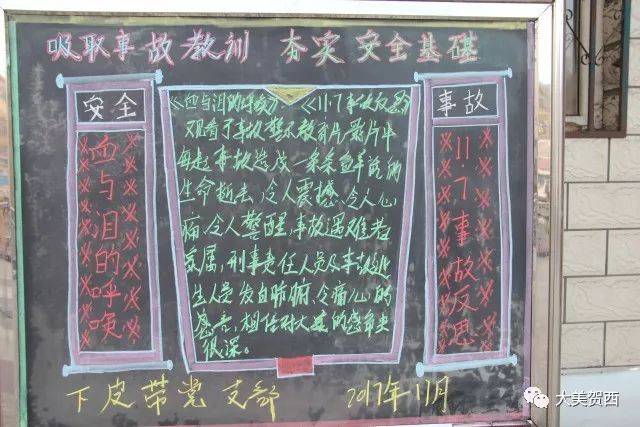 吸取事故教训 夯实安全基础
安全
血与泪的呼唤
《血与泪的呼唤》《11·7事故反思》
观看了事故警示教育片,影片中
每起事故总茂一条条鱼羊活的
生命逝去,令人震撼、令人心
痛,令人警醒,事故遇难者
家属,刑事责任人员及事故逃
生人员发自肺腑、令痛心的
感言,相信对大家的感触更
很深。
事故
11·7事故反思
下皮带党支部 2017年11月
大美贺西